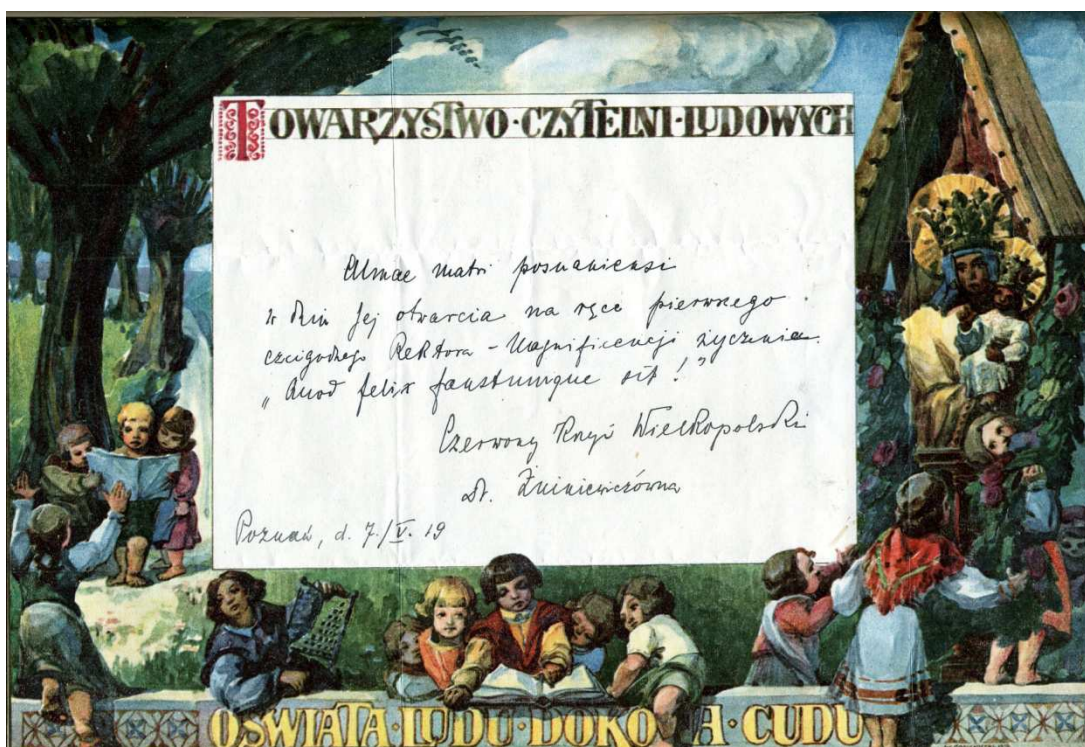 TOWARZYSTWO·CZYTELNI·LUDOWYCH
Almae matri posnaniensi
w dniu Jej otwarcia na ręce pierwszego
czcigodnego Rektora – Magnificencji życzenia
„Quod felix faustumque sit!”
Czerwony Krzyż Wielkopolski
St. Żniniewiczówna
Poznań, d. 7./V. 19
OŚWIATA·LUDU·DOKO A·CUDU